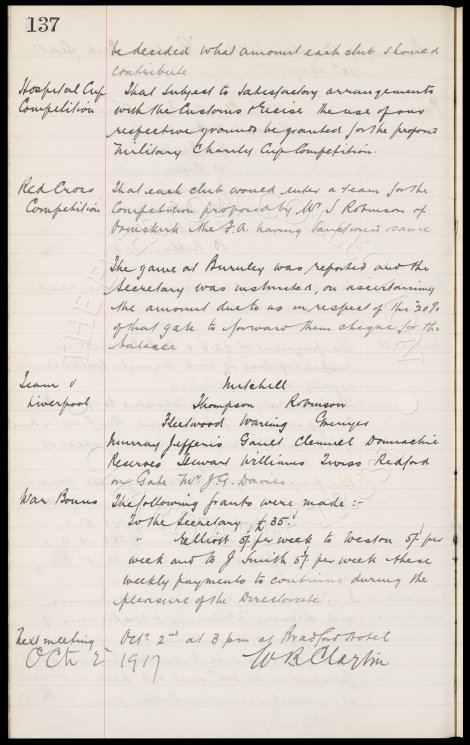 137
be decided what amount each club should
contribute
Hospital Cup
Competition
That subject to satisfactory arrangements
with the Customs & Excise the use of our
respective grounds be granted for the proposed
Military Charity Cup Competition.
Red Cross
Competition
That each club would enter a team for the
Competition proposed by Mr J Robinson of
Ormskirk the F.A. having sanctioned same
The game at Burnley was reported and the
Secretary was instructed, on ascertaining
the amount due to us in respect of the 20%
of that gate to forward them cheque for the
balance
Team v
Liverpool
Mitchell
Thompson Robinson
Fleetwood Wareing Grenyer
Murray Jefferis Gault Clennell Donnachie
Reserves Stewart Williams Twiss Redford
on Gate Mr J.G. Davies.
War Bonus
The following grants were made :-
To the Secretary £35.
" Elliott 5/- per week to Weston 5/- per
week and to J Smith 5/- per week these
weekly payments to continue during the
pleasure of the Directorate
Next meeting
Octr 2nd at 3 pm at Bradford Hotel
Oct 2 1917 W R Clayton